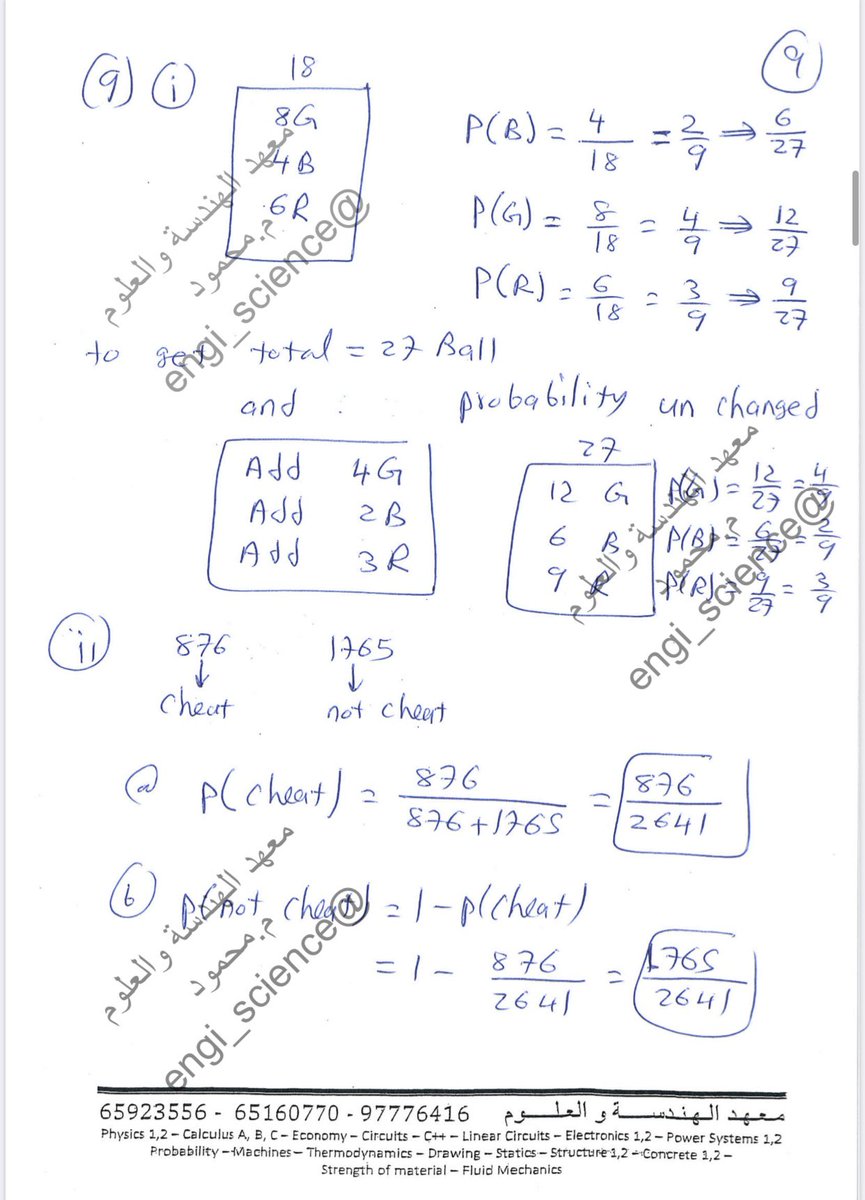 9
(9) i
18
8G
4B
6R
P(B) = 4/18 = 2/9 ⇒ 6/27
P(G) = 8/18 = 4/9 ⇒ 12/27
P(R) = 6/18 = 3/9 ⇒ 9/27
معهد الهندسة والعلوم
م.محمود
engi_science@
to get total = 27 Ball
and probability un changed
Add 4G
Add 2B
Add 3R
27
12 G
6 B
9 R
P(G) = 12/27 = 4/9
P(B) = 6/27 = 2/9
P(R) = 9/27 = 3/9
معهد الهندسة والعلوم
م.محمود
engi_science@
ii
876 1765
↓ ↓
cheat not cheat
a P(cheat) = 876/876+1765 = 876/2641
b P(not cheat) = 1 - P(cheat)
= 1 - 876/2641 = 1765/2641
معهد الهندسة والعلوم
م.محمود
engi_science@
65923556 - 65160770 - 97776416 معهد الهندسة و العلوم
Physics 1,2 – Calculus A, B, C – Economy – Circuits – C++ – Linear Circuits – Electronics 1,2 – Power Systems 1,2
Probability – Machines – Thermodynamics – Drawing – Statics – Structure 1,2 – Concrete 1,2 –
Strength of material – Fluid Mechanics